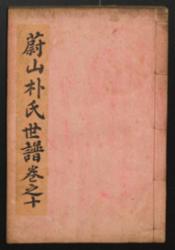 蔚山朴氏世譜卷之十